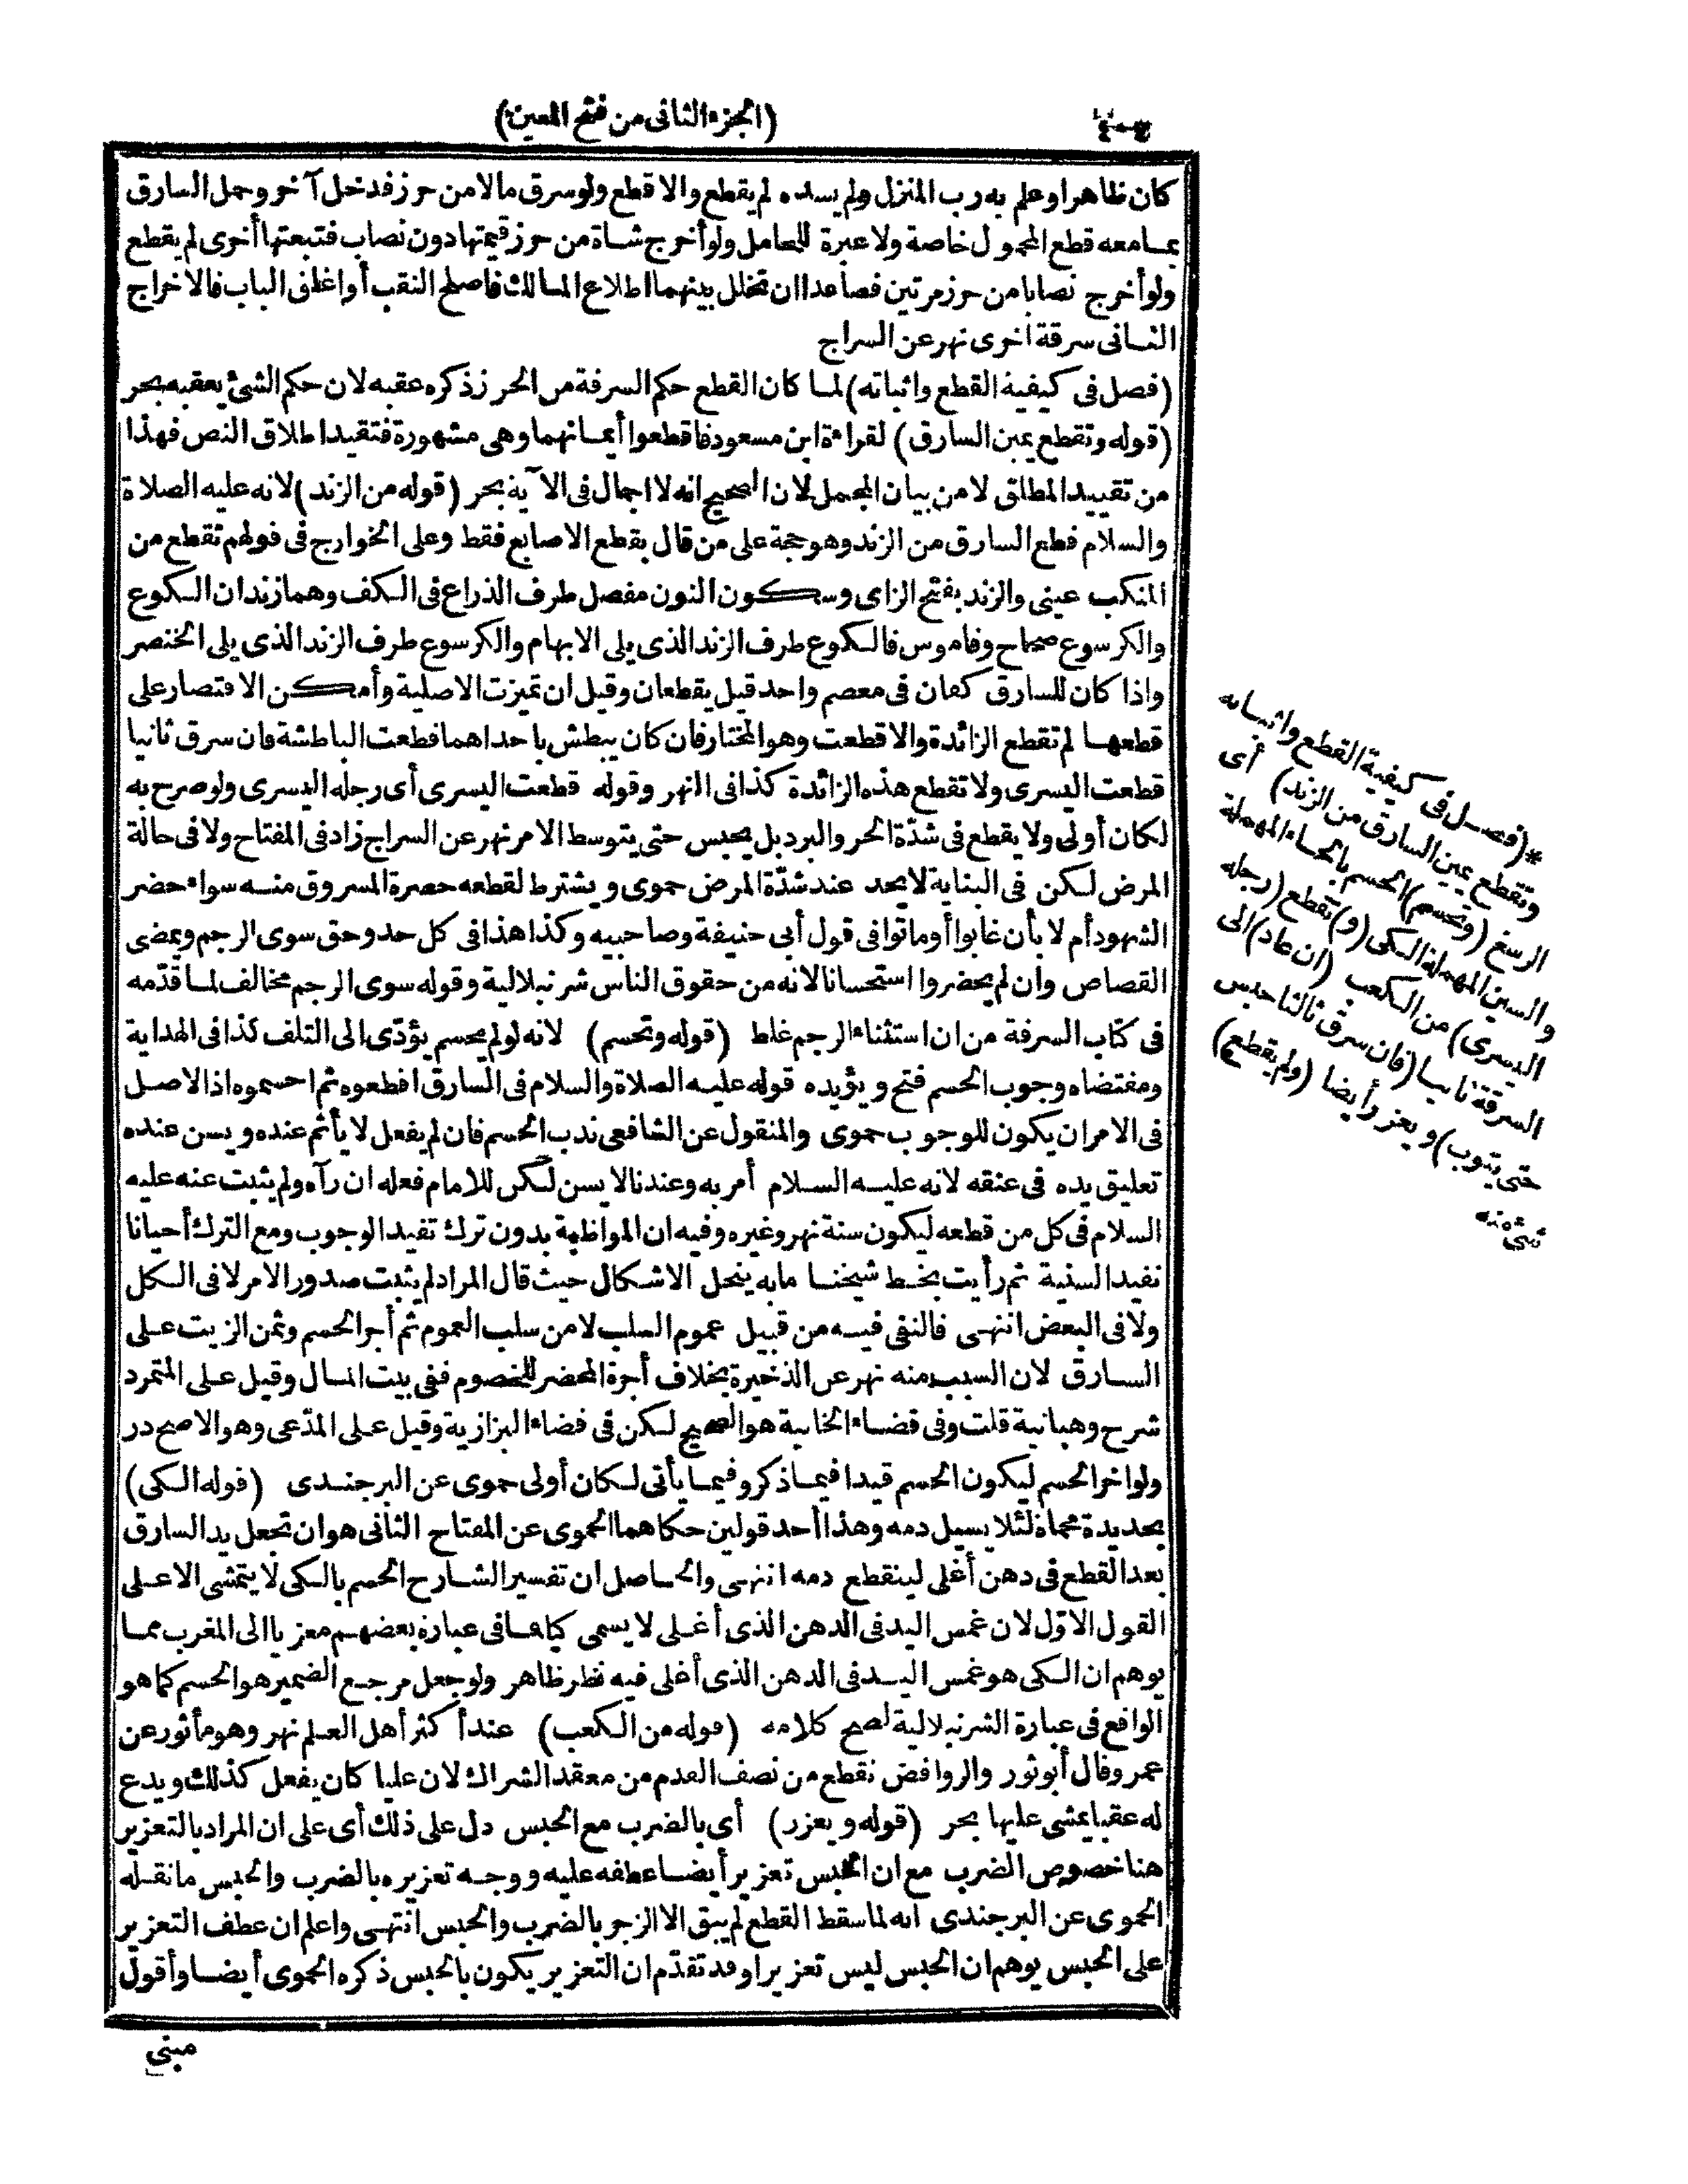 (الجزء الثانى من فتح المعين)
كان ظاهرا وعلم به رب المنزل ولم يسده لم يقطع والا قطع ولو سرق مالا من حرز فدخل آخر وحمل السارق
بما معه قطع المحمول خاصة ولا عبرة للحامل ولو أخرج شاة من حرز قيمتها دون نصاب فتبعتها أخرى لم يقطع
ولو أخرج نصابا من حرز مرتين فصاعدا ان تخلل بينهما اطلاع المالك فاصلح النقب أو اغلق الباب فالاخراج
الثانى سرقة أخرى نهر عن السراج
(فصل فى كيفية القطع واثباته) لما كان القطع حكم السرقة من الحرز ذكره عقبه لان حكم الشئ يعقبه بحر
(قوله وتقطع يمين السارق) لقراءة ابن مسعود فاقطعوا أيمانهما وهى مشهورة فتقيد اطلاق النص فهذا
من تقييد المطلق لا من بيان المجمل لان الصحيح انه لا اجمال فى الآية بحر (قوله من الزند) لانه عليه الصلاة
والسلام قطع السارق من الزند وهو حجة على من قال بقطع الاصابع فقط وعلى الخوارج فى قولهم تقطع من
المنكب عينى والزند بفتح الزاى وسكون النون مفصل طرف الذراع فى الكف وهما زندان الكوع
والكرسوع صحاح وقاموس فالكوع طرف الزند الذى يلى الابهام والكرسوع طرف الزند الذى يلى الخنصر
واذا كان للسارق كفان فى معصم واحد قيل يقطعان وقيل ان تميزت الاصلية وأمكن الاقتصار على
قطعها لم تقطع الزائدة والا قطعت وهو المختار فان كان يبطش باحداهما قطعت الباطشة فان سرق ثانيا
قطعت اليسرى ولا تقطع هذه الزائدة كذا فى النهر وقوله قطعت اليسرى أى رجله اليسرى ولو صرح به
لكان أولى ولا يقطع فى شدّة الحر والبرد بل يحبس حتى يتوسط الامر نهر عن السراج زاد فى المفتاح ولا فى حالة
المرض لكن فى البناية لا يحد عند شدّة المرض حموى ويشترط لقطعه حضرة المسروق منه سواء حضر
الشهود أم لا بأن غابوا أو ماتوا فى قول أبى حنيفة وصاحبيه وكذا هذا فى كل حد وحق سوى الرجم ويمضى
القصاص وان لم يحضروا استحسانا لانه من حقوق الناس شرنبلالية وقوله سوى الرجم مخالف لما قدّمه
فى كتاب السرقة من ان استثناء الرجم غلط (قوله وتحسم) لانه لو لم يحسم يؤدّى الى التلف كذا فى الهداية
ومقتضاه وجوب الحسم فتح ويؤيده قوله عليه الصلاة والسلام فى السارق اقطعوه ثم احسموه اذ الاصل
فى الامر ان يكون للوجوب حموى والمنقول عن الشافعى ندب الحسم فان لم يفعل لا يأثم عنده ويسن عنده
تعليق يده فى عنقه لانه عليه السلام أمر به وعندنا لا يسن لكن للامام فعله ان رآه ولم يثبت عنه عليه
السلام فى كل من قطعه ليكون سنة نهر وغيره وفيه ان المواظبة بدون ترك تفيد الوجوب ومع الترك أحيانا
تفيد السنية ثم رأيت بخط شيخنا ما به ينحل الاشكال حيث قال المراد لم يثبت صدور الامر لا فى الكل
ولا فى البعض انتهى فالنفى فيه من قبيل عموم السلب لا من سلب العموم ثم أجر الحسم وثمن الزيت على
السارق لان السبب منه نهر عن الذخيرة بخلاف أجرة المحضر للخصوم ففى بيت المال وقيل على المتمرد
شرح وهبانية قلت وفى قضاء الخانية هو الصحيح لكن فى قضاء البزازية وقيل على المدّعى وهو الاصح در
ولو اخر الحسم ليكون الحسم قيدا فيما ذكر وفيما يأتى لكان أولى حموى عن البرجندى (قوله الكى)
بحديدة محماة لئلا يسيل دمه وهذا أحد قولين حكاهما الحموى عن المفتاح الثانى هو ان تجعل يد السارق
بعد القطع فى دهن أغلى لينقطع دمه انتهى والحاصل ان تفسير الشارح الحسم بالكى لا يتمشى الا على
القول الاوّل لان غمس اليد فى الدهن الذى أغلى لا يسمى كيا فما فى عبارة بعضهم معزيا الى المغرب مما
يوهم ان الكى هو غمس اليد فى الدهن الذى أغلى فيه نظر ظاهر ولو جعل مرجع الضمير هو الحسم كما هو
الواقع فى عبارة الشرنبلالية لصح كلامه (قوله من الكعب) عند أكثر أهل العلم نهر وهو مأثور عن
عمر وقال أبو ثور والروافض تقطع من نصف القدم من معقد الشراك لان عليا كان يفعل كذلك ويدع
له عقبا يمشى عليها بحر (قوله ويعزر) أى بالضرب مع الحبس دل على ذلك أى على ان المراد بالتعزير
هنا خصوص الضرب مع ان الحبس تعزير أيضا عطفه عليه ووجه تعزيره بالضرب والحبس ما نقله
الحموى عن البرجندى انه لما سقط القطع لم يبق الا الزجر بالضرب والحبس انتهى واعلم ان عطف التعزير
على الحبس يوهم ان الحبس ليس تعزيرا وقد تقدّم ان التعزير يكون بالحبس ذكره الحموى أيضا وأقول
مبنى
*(فصل فى كيفية القطع واثباته
وتقطع يمين السارق من الزند) أى
الرسغ (وتحسم) الحسم بالحاء المهملة
والسين المهملة الكى (و) تقطع (رجله
اليسرى) من الكعب (ان عاد) الى
السرقة ثانيا (فان سرق ثالثا حبس
حتى يتوب) ويعزر أيضا (ولم يقطع)